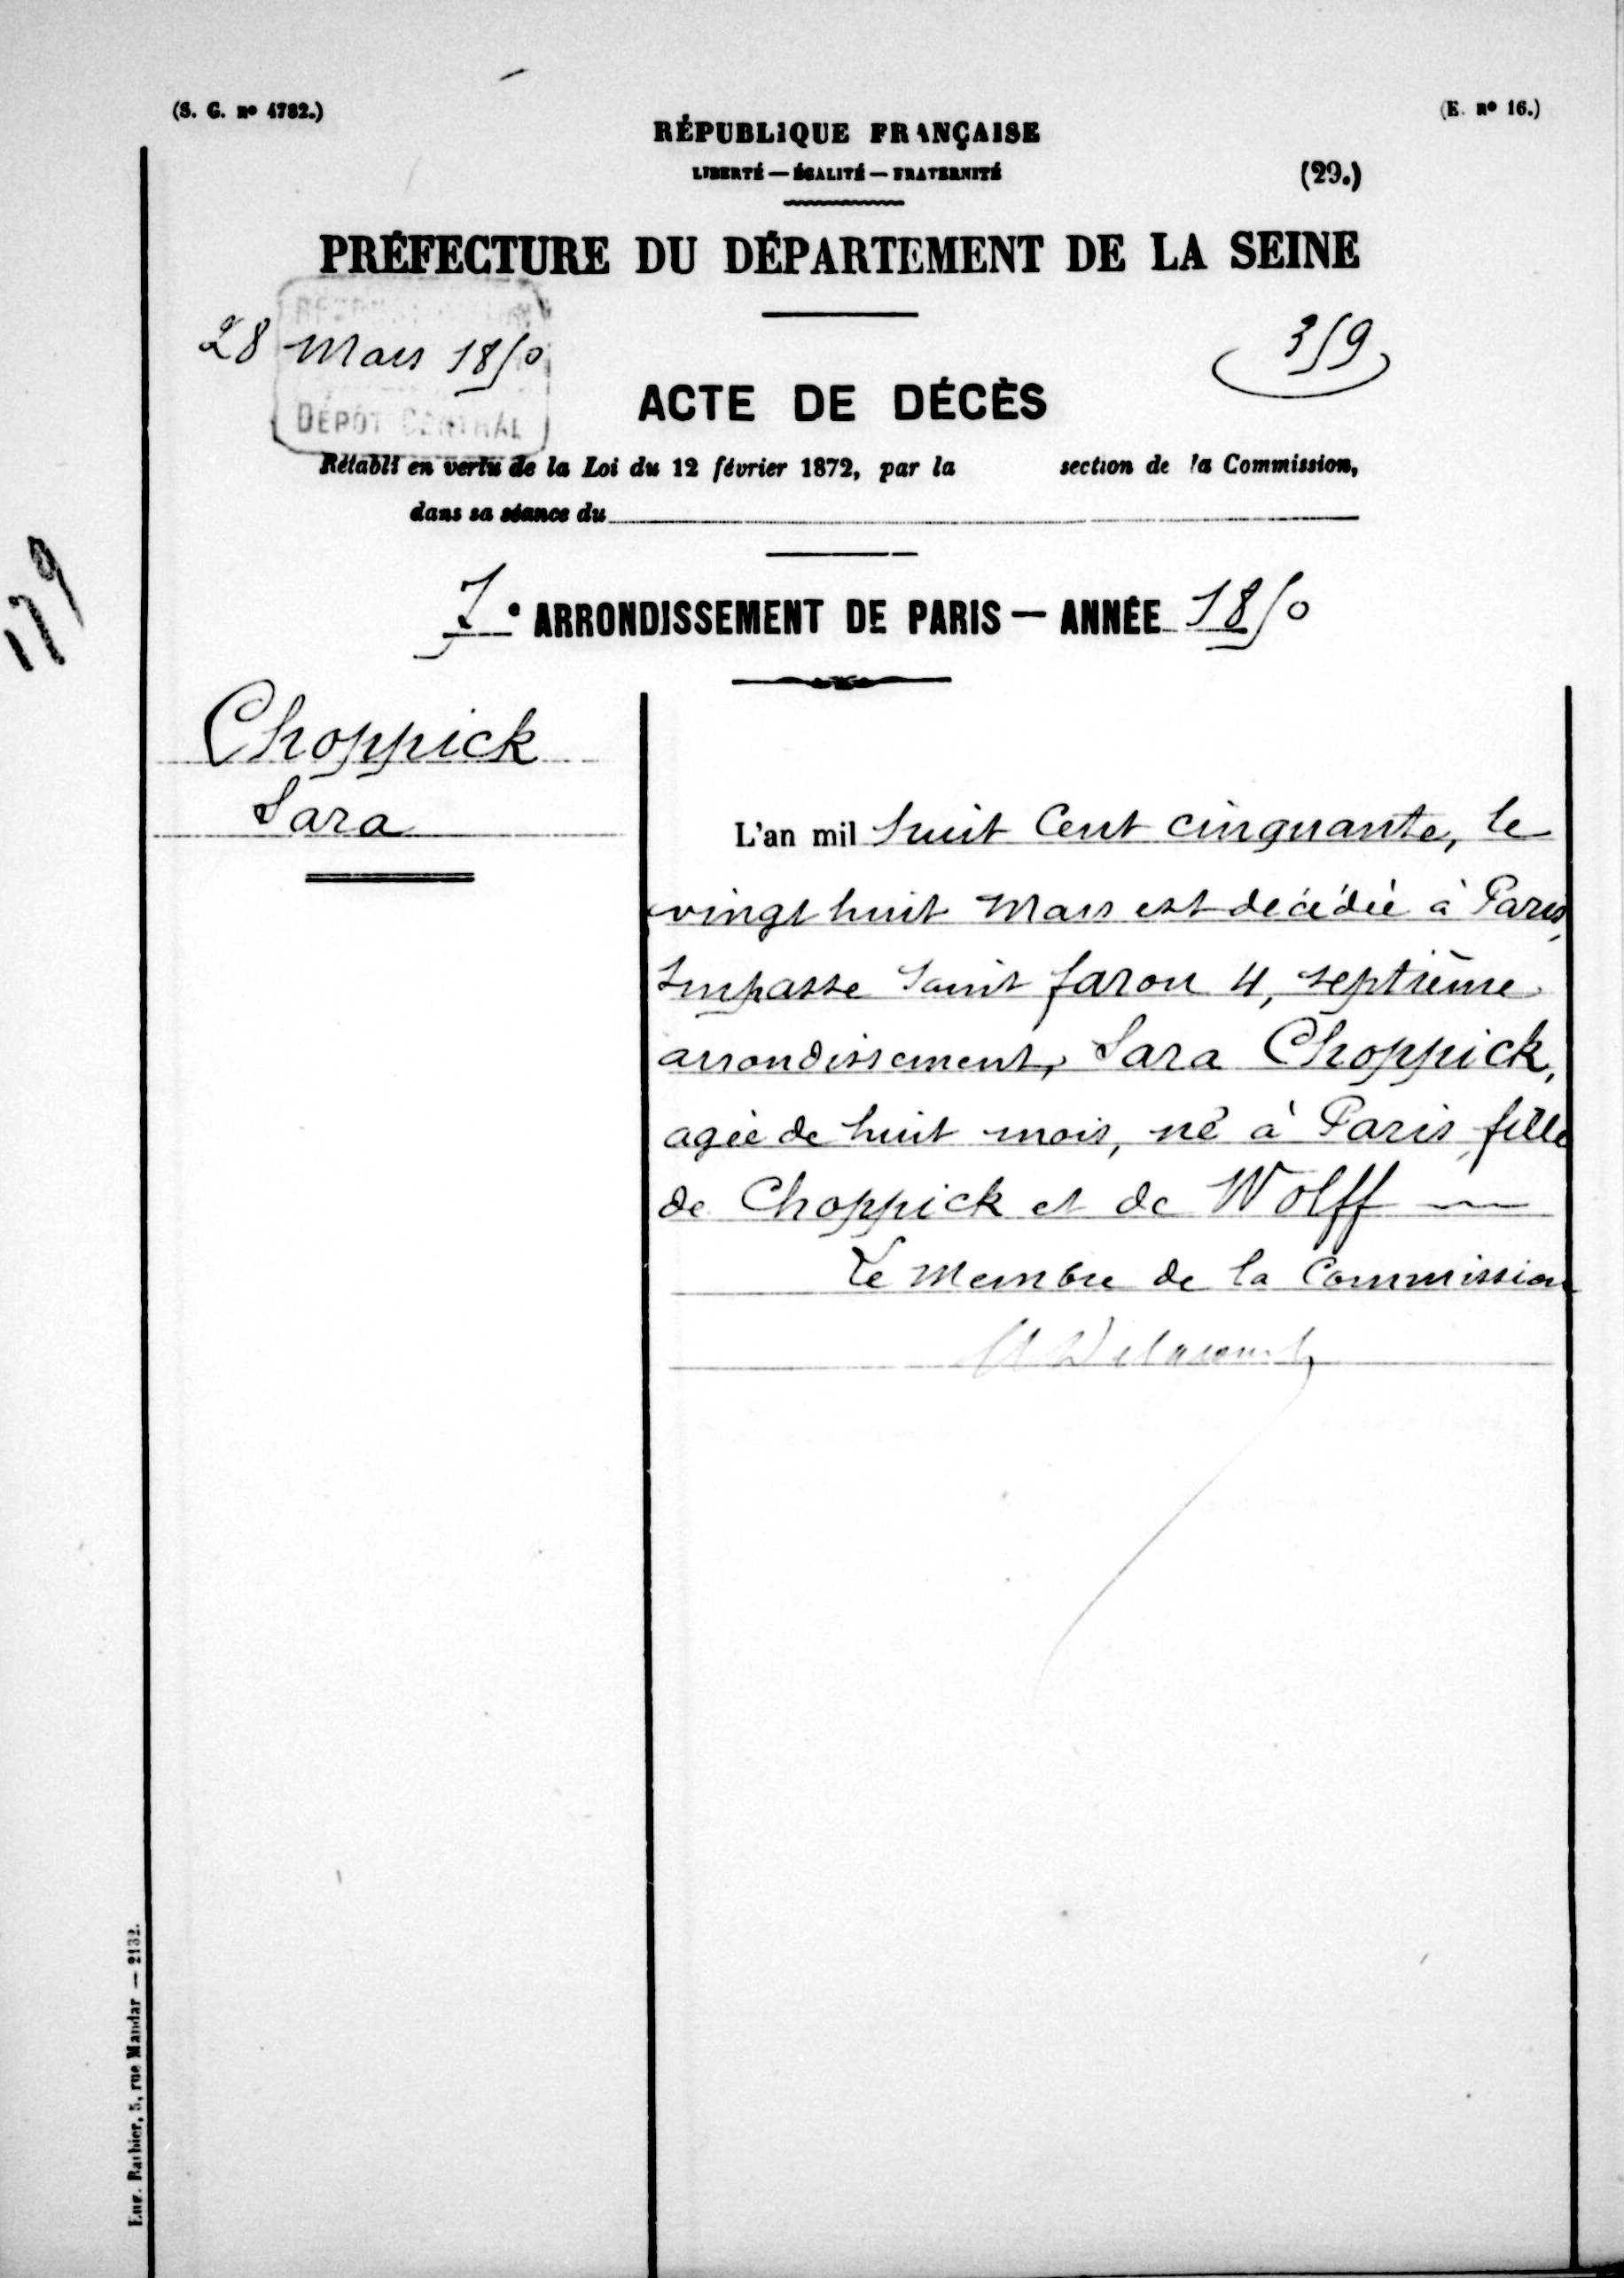 (S. G. nº 4782.)
(E. nº 16.)
RÉPUBLIQUE FRANÇAISE
LIBERTÉ — ÉGALITÉ — FRATERNITÉ
(29.)
PRÉFECTURE DU DÉPARTEMENT DE LA SEINE
28 Mars 1850
359
DÉPÔT CENTRAL
ACTE DE DÉCÈS
Rétabli en vertu de la Loi du 12 février 1872, par la section de la Commission,
dans sa séance du
7e ARRONDISSEMENT DE PARIS — ANNÉE 1850
Choppick
Sara
L'an mil huit Cent cinquante, le
vingt huit Mars est décédée à Paris,
Impasse Saint faron 4, septième
arrondissement, Sara Choppick,
agée de huit mois, né à Paris, fille
de Choppick et de Wolff —
Le Membre de la Commission
Eug. Barbier, 5, rue Mandar — 2132.